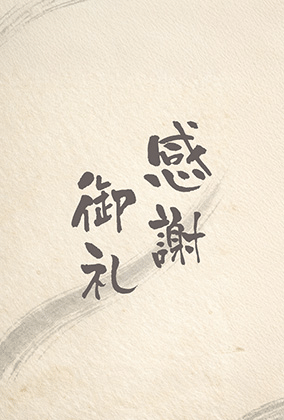 感謝
御礼